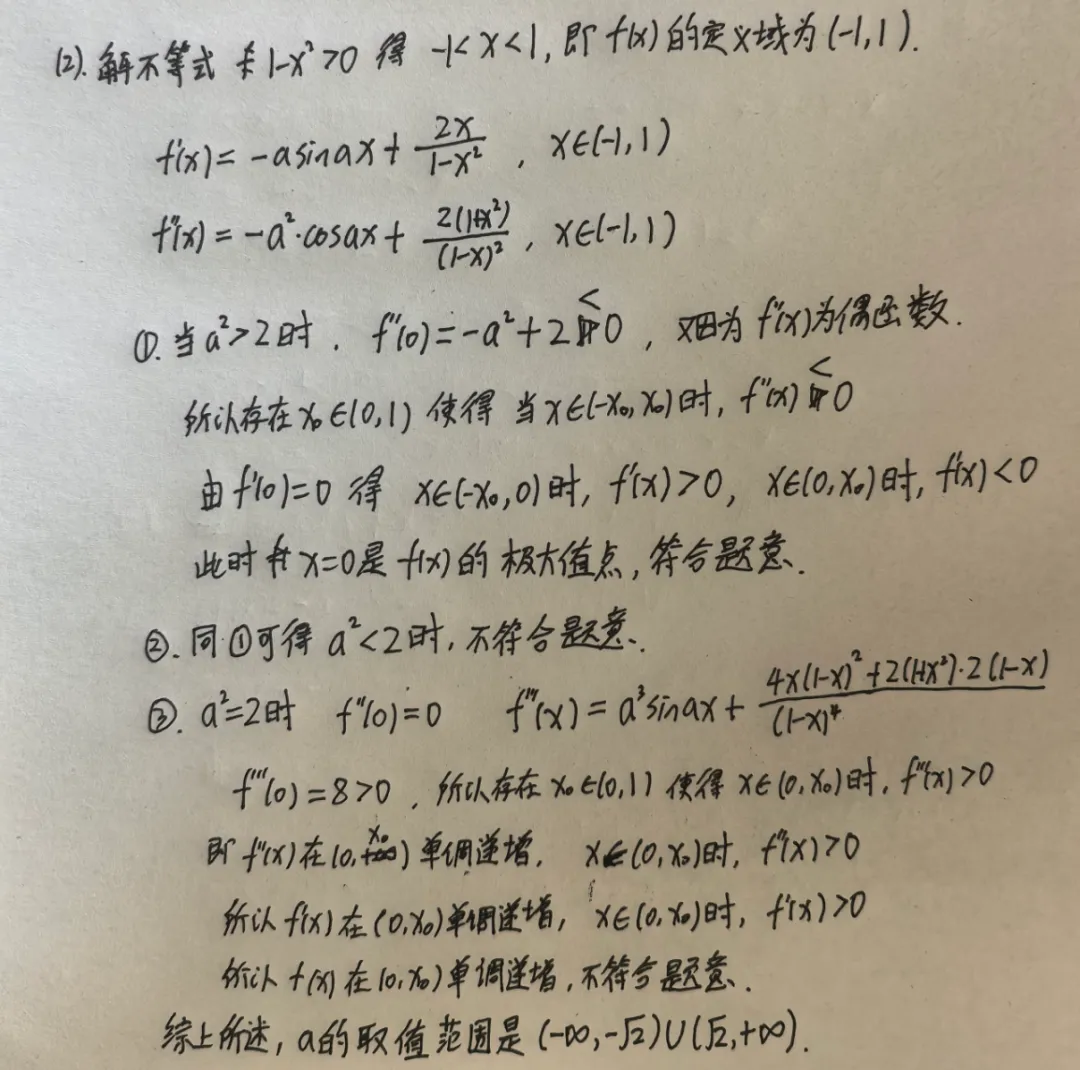 (2). 解不等式 1-x²>0 得 -1<x<1, 即 f(x) 的定义域为 (-1,1).
f'(x) = -asinax + \frac{2x}{1-x²} , x∈(-1,1)
f''(x) = -a²·cosax + \frac{2(1+x²)}{(1-x)²} , x∈(-1,1)
①. 当 a²>2 时. f''(0) = -a²+2 < 0 , 又因为 f''(x) 为偶函数.
所以存在 x₀∈(0,1) 使得 当 x∈(-x₀,x₀) 时, f''(x) < 0
由 f'(0)=0 得 x∈(-x₀,0) 时, f'(x)>0, x∈(0,x₀) 时, f'(x)<0
此时 x=0 是 f(x) 的 极大值点, 符合题意.
②. 同①可得 a²<2 时, 不符合题意.
③. a²=2 时 f''(0)=0 f'''(x) = a³sinax + \frac{4x(1-x)²+2(1+x²)·2(1-x)}{(1-x)⁴}
f'''(0)=8>0 , 所以存在 x₀∈(0,1) 使得 x∈(0,x₀) 时, f'''(x)>0
即 f''(x) 在 (0,x₀) 单调递增, x∈(0,x₀) 时, f''(x)>0
所以 f'(x) 在 (0,x₀) 单调递增, x∈(0,x₀) 时, f'(x)>0
所以 f(x) 在 (0,x₀) 单调递增, 不符合题意.
综上所述, a的取值范围是 (-∞,-√2)∪(√2,+∞).